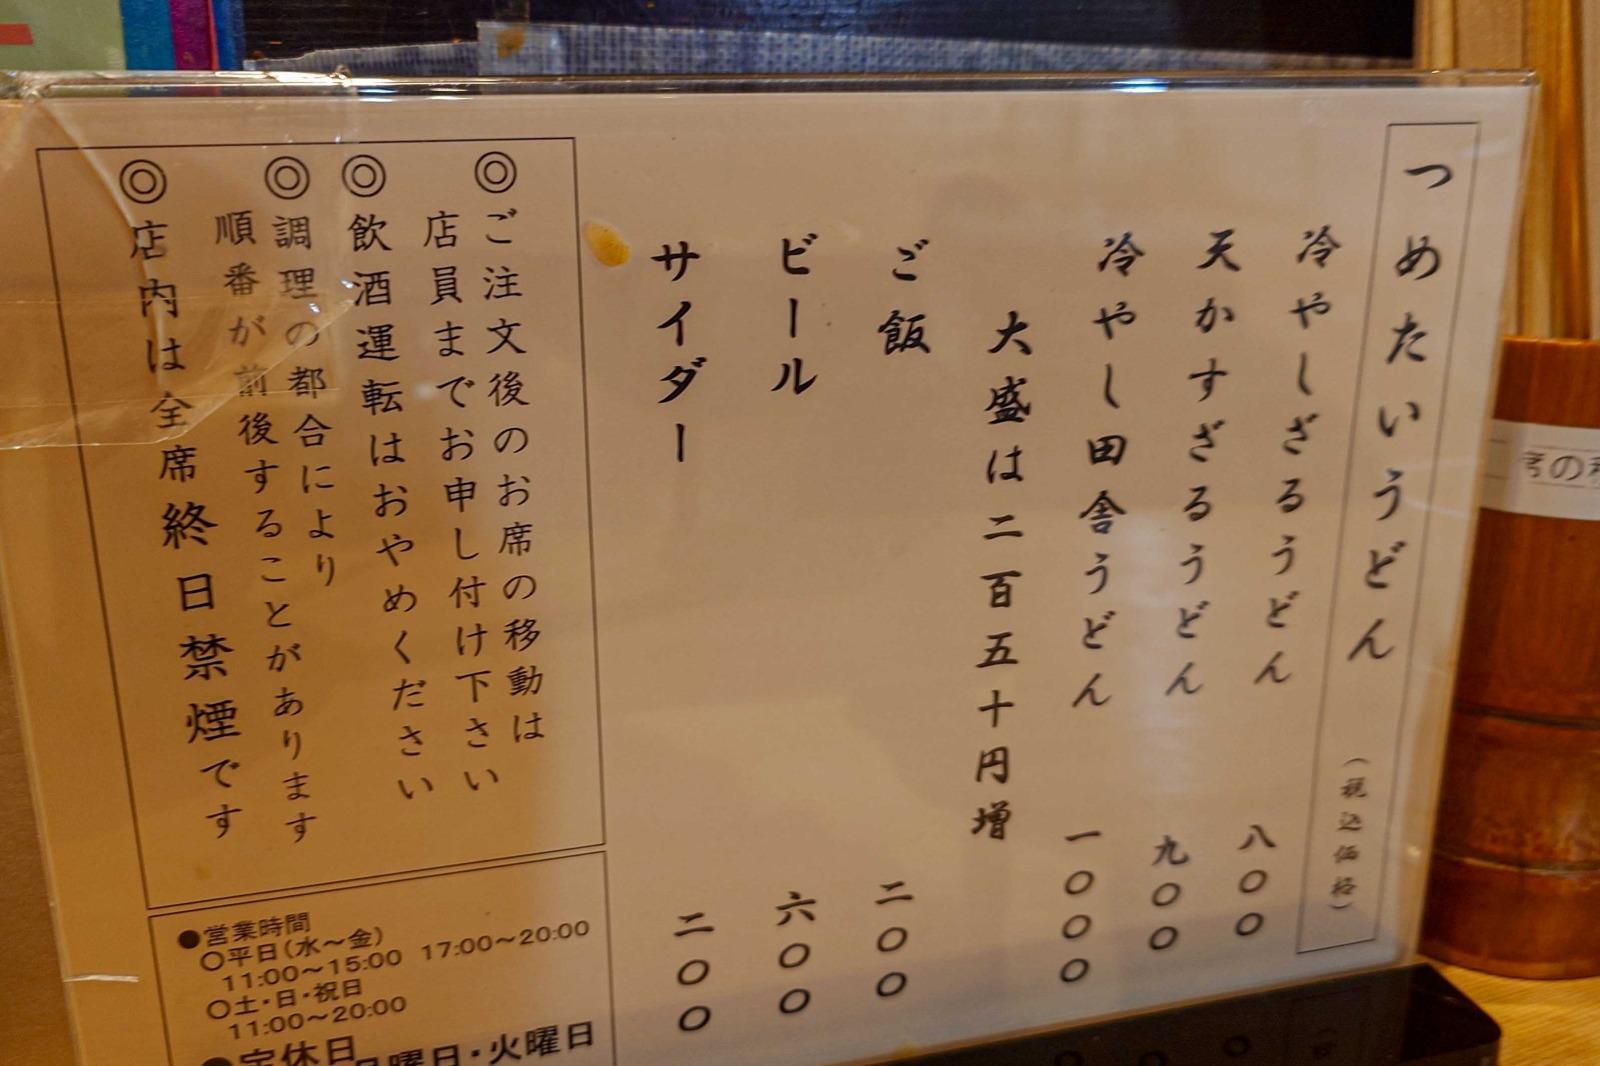 つめたいうどん （税込価格）
冷やしざるうどん 八〇〇
天かすざるうどん 九〇〇
冷やし田舎うどん 一〇〇〇
大盛は二百五十円増
ご飯 二〇〇
ビール 六〇〇
サイダー 二〇〇
◎ご注文後のお席の移動は
店員までお申し付け下さい
◎飲酒運転はおやめください
◎調理の都合により
順番が前後することがあります
◎店内は全席終日禁煙です
●営業時間
〇平日（水～金）
11:00～15:00 17:00～20:00
〇土・日・祝日
11:00～20:00
●定休日 月曜日・火曜日
席の